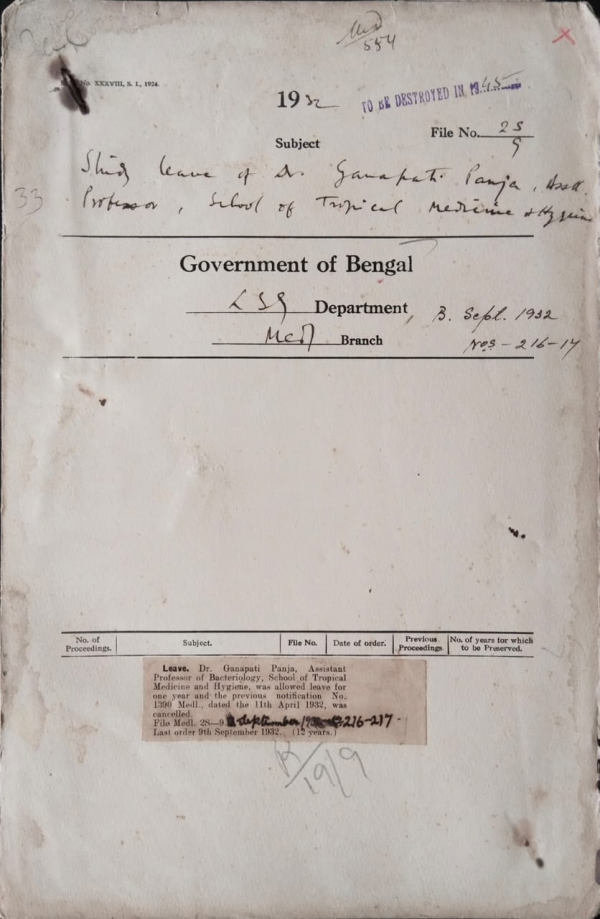 Med
554
No. XXXVIII, S. I., 1924
1932
TO BE DESTROYED IN 1945
File No. 2S
9
Subject
Study leave of Dr. Ganapati Panja, Asst.
33
Professor, School of Tropical Medicine & Hygiene
Government of Bengal
LSG Department, B. Sept. 1932
Medl Branch Nos - 216-17
No. of Proceedings. Subject. File No. Date of order. Previous Proceedings. No. of years for which to be Preserved.
Leave. Dr. Ganapati Panja, Assistant
Professor of Bacteriology, School of Tropical
Medicine and Hygiene, was allowed leave for
one year and the previous notification No.
1390 Medl., dated the 11th April 1932, was
cancelled.
File Medl. 2S—9 B September 216-217-
Last order 9th September 1932. (12 years.)
19/9